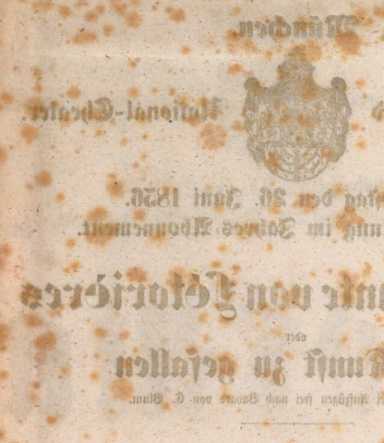 München.
National-Theater.
tag den 26. Juni 1856.
ung im Jahres-Abonnement.
von Létorières
oder
Kunst zu gefallen
Aufzügen frei nach Bavard von C. Blum.